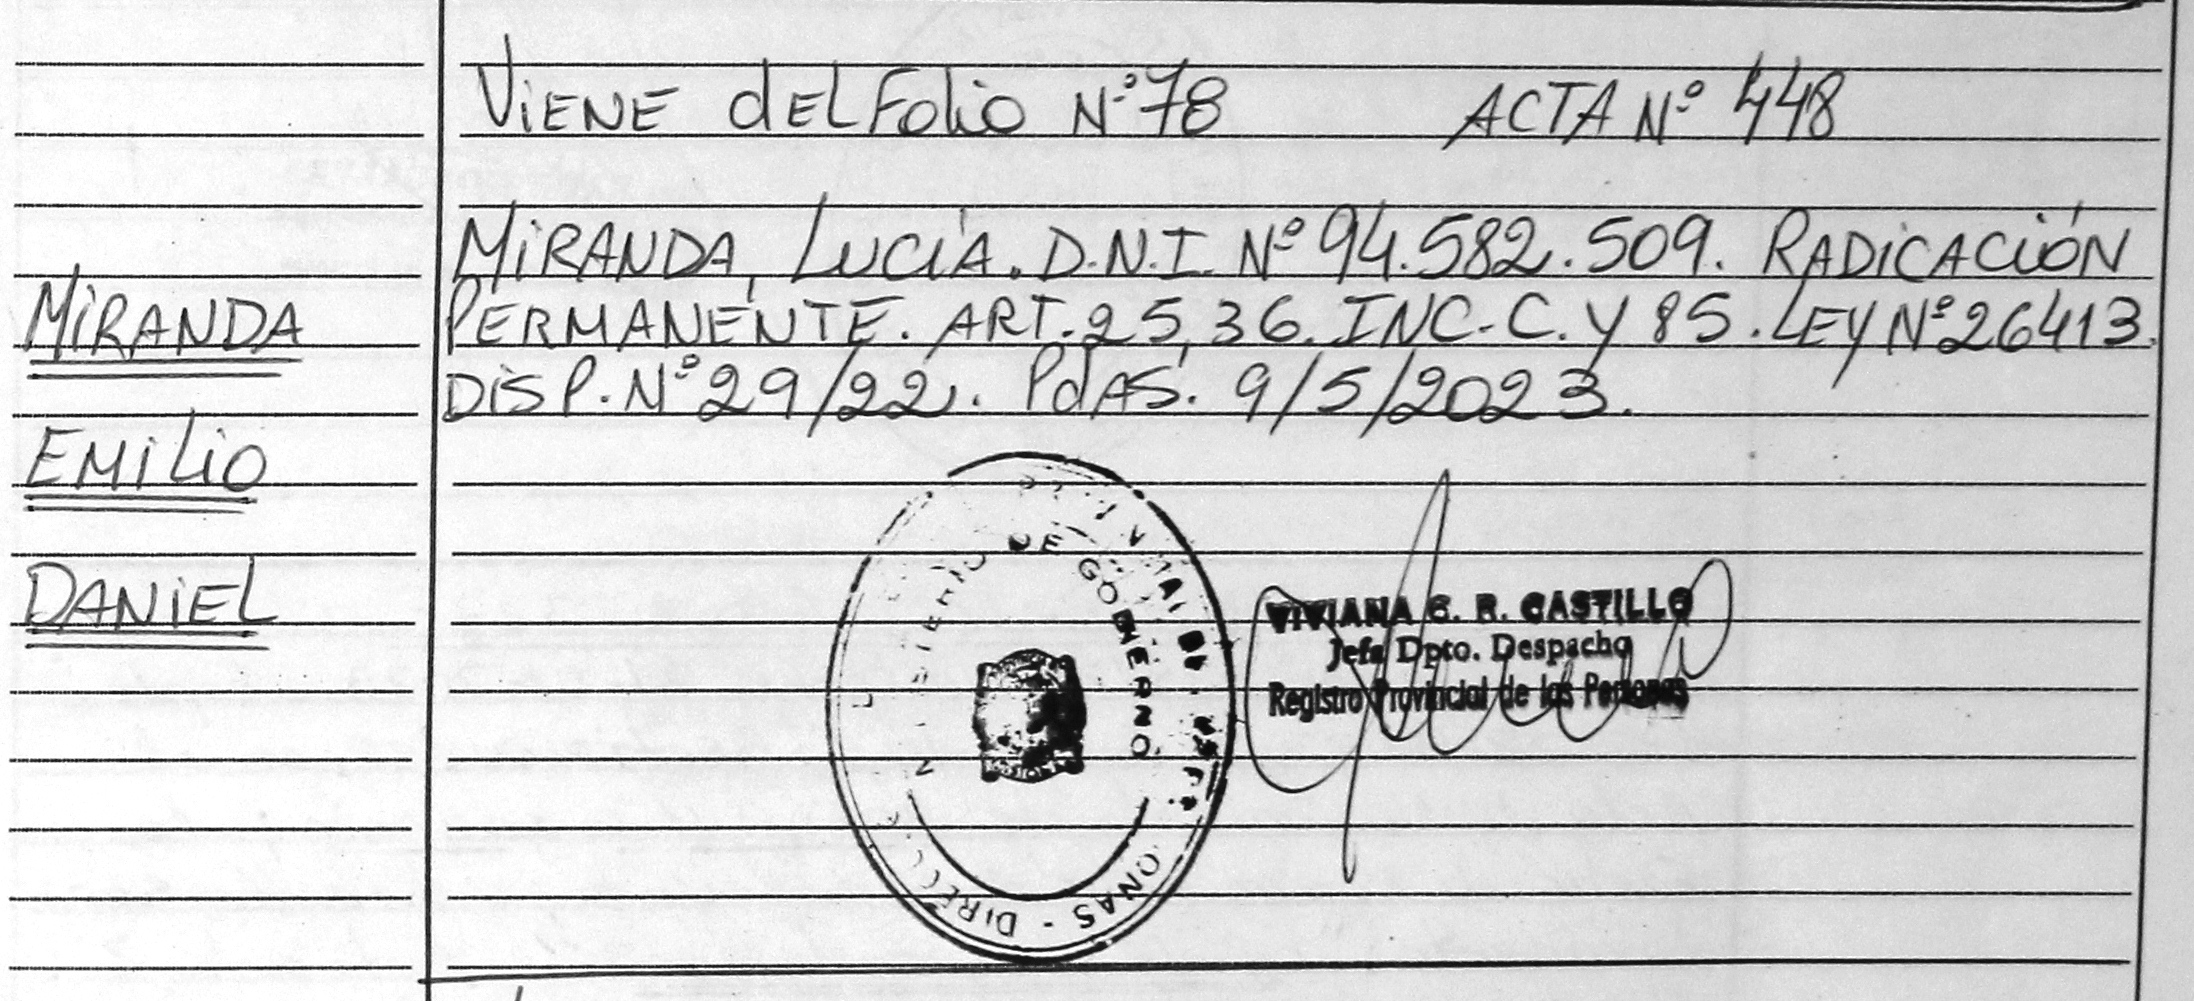 ViENE dEL Folio Nº 78 ACTA Nº 448
MiRANDA, LUCíA. D.N.I. Nº 94.582.509. RADiCACiÓN
PERMANENTE. ART. 25, 36. INC-C. Y 85. LEY Nº 26413.
DiSP. Nº 29/22. PdAS. 9/5/2023.
MiRANDA
EMiLio
DANiEL
VIVIANA C. R. CASTILLO
Jefa Dpto. Despacho
Registro Provincial de las Personas
DE GOBIERNO